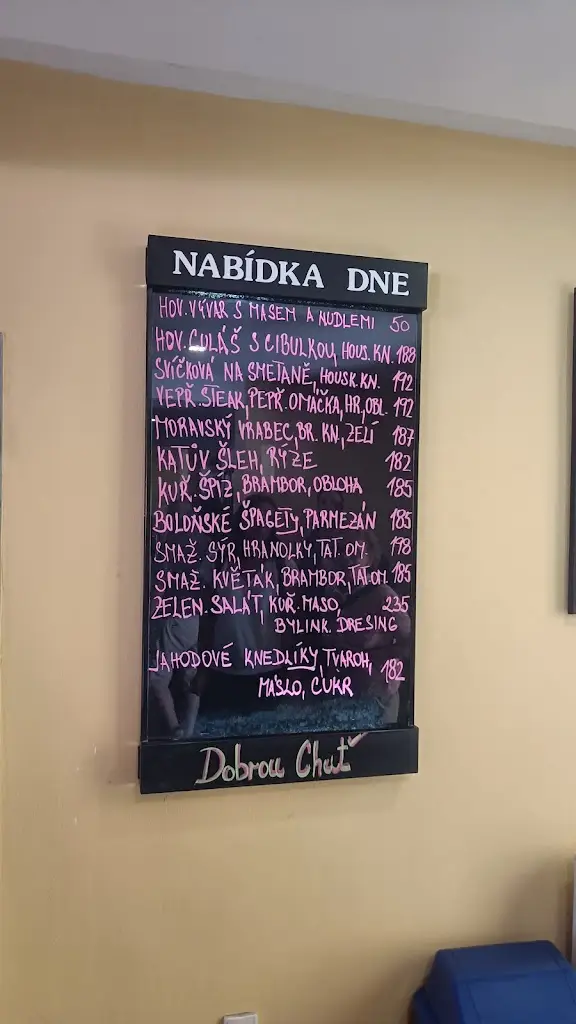 NABÍDKA DNE
HOV. VÝVAR S MASEM A NUDLEMI 50
HOV. GULÁŠ S CIBULKOU, HOUS. KN. 188
SVÍČKOVÁ NA SMETANĚ, HOUSK. KN. 192
VEPŘ. STEAK, PEPŘ. OMÁČKA, HR, OBL. 192
MORAVSKÝ VRABEC, BR. KN, ZELÍ 187
KATŮV ŠLEH, RÝŽE 182
KUŘ. ŠPÍZ, BRAMBOR, OBLOHA 185
BOLOŇSKÉ ŠPAGETY, PARMEZÁN 185
SMAŽ. SÝR, HRANOLKY, TAT. OM. 198
SMAŽ. KVĚTÁK, BRAMBOR, TAT. OM. 185
ZELEN. SALÁT, KUŘ. MASO, 235
BYLINK. DRESING
JAHODOVÉ KNEDLÍKY, TVAROH, 182
MÁSLO, CUKR
Dobrou Chuť